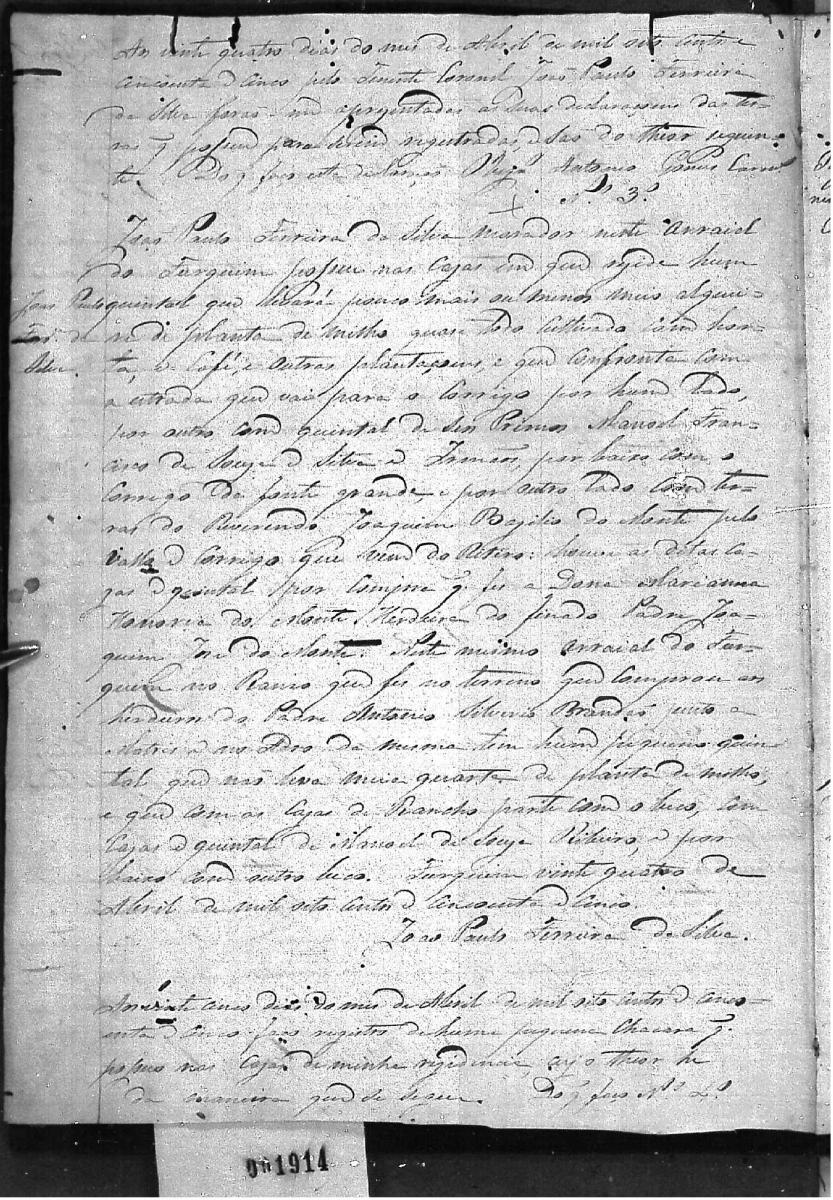 Aos vinte quatro dias do mes de Abril de mil oito centos e
cincoenta e cinco pelo Tenente Coronel João Paulo Ferreira
da Silva forão me aprezentadas as suas declaraçoens das ter-
ras q̃ possue para serem registradas, e são do theor seguin-
te. Do q̃ fas esta declaração Antonio Gomes
Nº 3º
João Paulo Ferreira da Silva morador neste Arraial
do Furquim possue nas Cazas em que rezide hum
João Paulo
Ferrª da
Silva
quintal que levará pouco mais ou menos meio alquei-
re de planta de milho quase todo cultivado com hor-
ta, e Café, e outras plantaçoens, e que confronta com
a estrada que vai para o Corrigo por hum lado,
por outro com quintal de seus Primos Manoel Fran-
cisco de Souza e Silva e Irmãos, por baixo com o
Corrigo da fonte grande, e por outro lado com ter-
ras do Reverendo Joaquim Bazilio do Monte pelo
vallo e Corrigo que vem do Retiro: houve as ditas Ca-
zas e quintal por Compra q̃ fes a Dona Marianna
Honoria do Monte Herdeira do finado Padre Joa-
quim Jose do Monte. Neste mesmo Arraial do Fur-
quim no Rancho que fes no terreno que comprou aos
herdeiros do Padre Antonio Silverio Brandão junto a
Matris e no Adro da mesma tem hum pequeno quin-
tal que não leva meia quarta de planta de milho,
e que com as Cazas de Rancho parte com o beco, com
Cazas e quintal de Manoel de Souza Ribeiro, e por
baixo com outro beco. Furquim vinte quatro de
Abril de mil oito centos e cincoenta e cinco.
João Paulo Ferreira da Silva.
Aos vinte cinco dias do mes de Abril de mil oito centos e cinco-
enta e cinco faço registro de huma pequena Chacara q̃
possuo nas Cazas de minha rezidencia, cujo theor he
da maneira que se segue. Do q̃ fas Nº 4º
001914